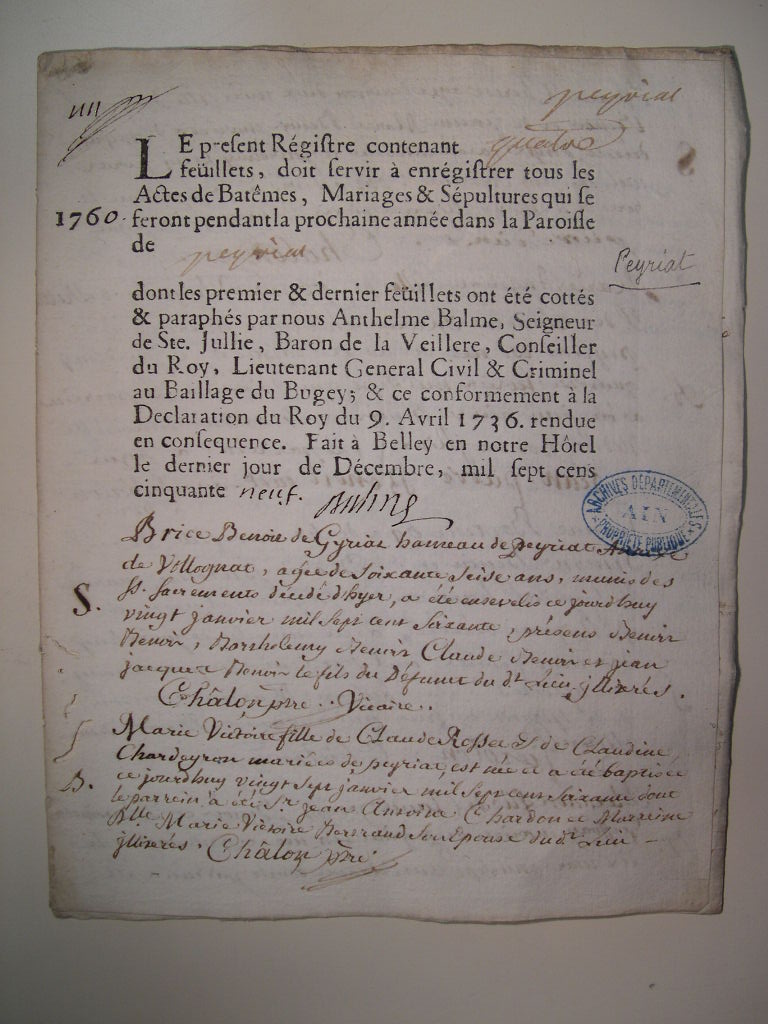 peyriat
LE present Régistre contenant quatre
feüillets, doit servir à enrégistrer tous les
Actes de Batêmes, Mariages & Sépultures qui se
1760. feront pendant la prochaine année dans la Paroisse
de peyriat
Peyriat
dont les premier & dernier feüillets ont été cottés
& paraphés par nous Anthelme Balme, Seigneur
de Ste. Jullie, Baron de la Veillere, Conseiller
du Roy, Lieutenant General Civil & Criminel
au Baillage du Bugey; & ce conformement à la
Declaration du Roy du 9. Avril 1736. rendue
en consequence. Fait à Belley en notre Hôtel
le dernier jour de Décembre, mil sept cens
cinquante neuf.
ARCHIVES DÉPARTEMENTALES
AIN
PROPRIÉTÉ PUBLIQUE
Brice Benoit de Gyriat hameau de Peyriat
de Vollognat, agée de soixante seise ans, munis des
S. St. sacrements décédé d'hyer, a été enseveli ce jourd'huy
vingt janvier mil sept cent soixante, présens Benoit
Benoit, Barthelemy Benoit Claude Benoit et jean
jacques Benoit le fils du Défunt du dt. Lieu, jllitérés.
Châlon ptre. Vicaire.
Marie Victoire fille de Claude Rosset & de Claudine
Chardeyron mariées de peyriat, est née et a été baptisée
B. ce jourd'huy vingt sept janvier mil sept cent soixante dont
le parrein a été Sr. jean Antoine Chardon et Marreine
Dlle. Marie Victoire Bertrand son Epouse du dt. Lieu
jllitérés. Châlon ptre.